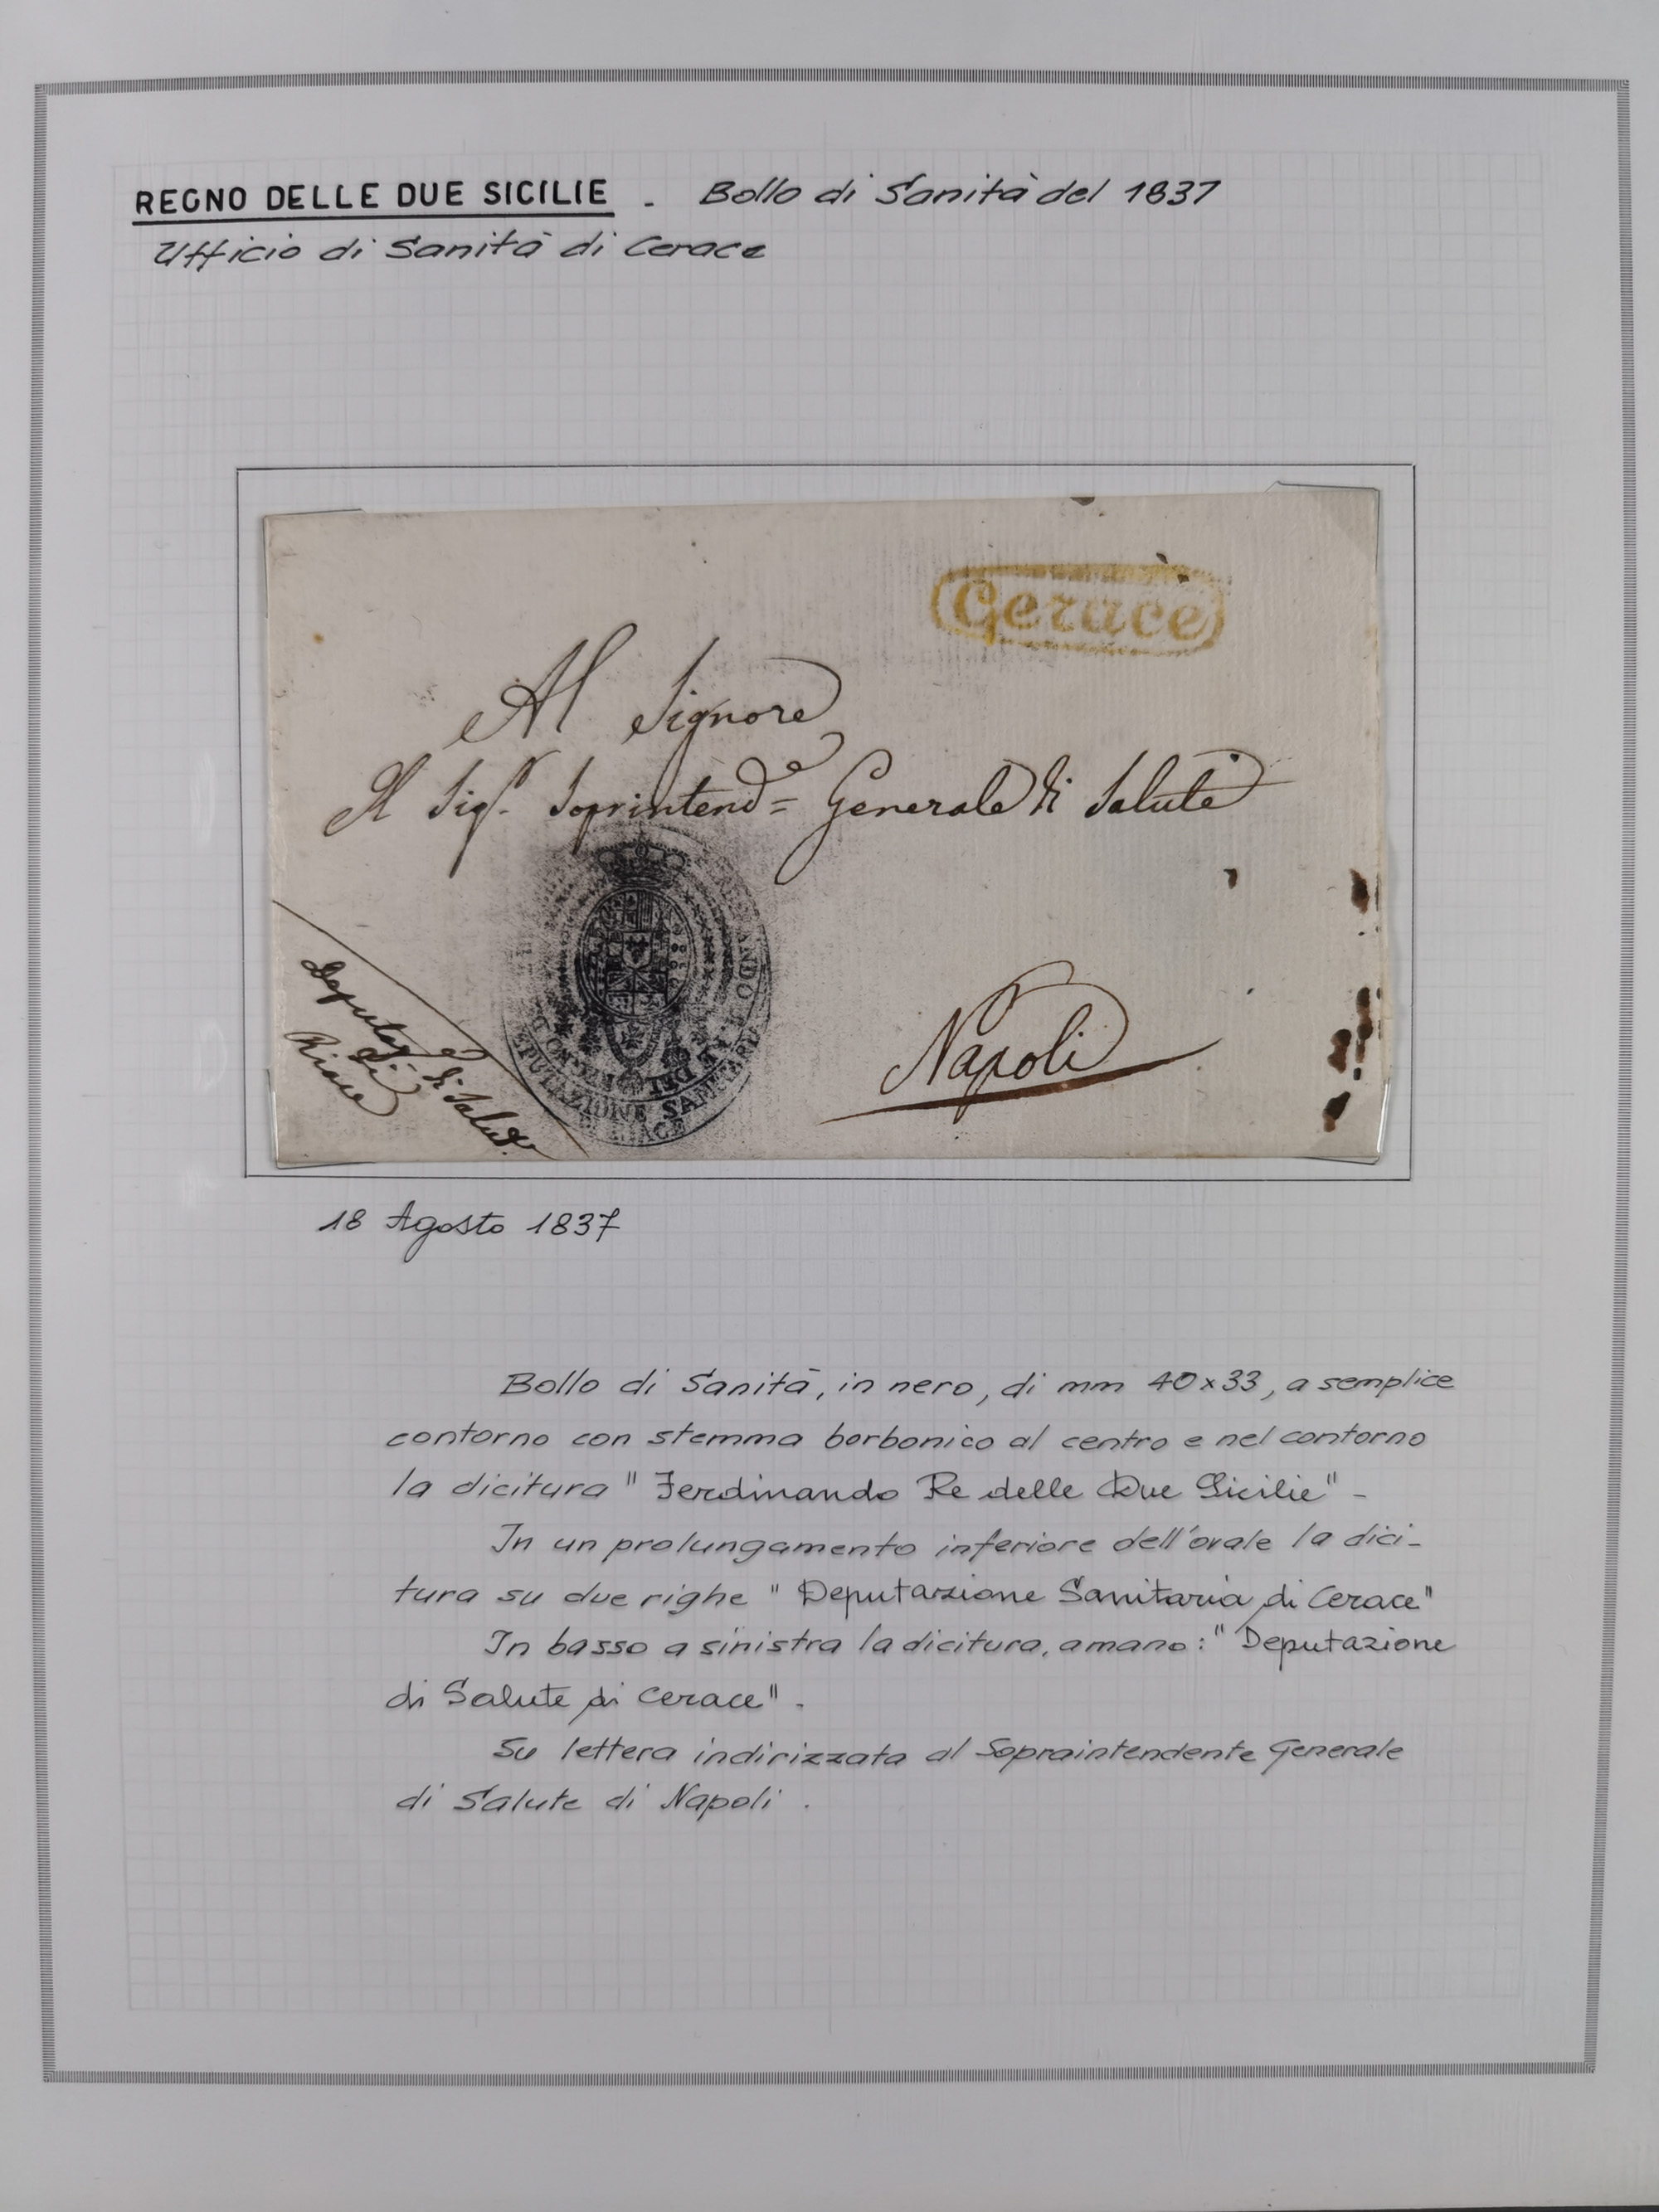 REGNO DELLE DUE SICILIE - Bollo di Sanità del 1837
Ufficio di Sanità di Cerace
Gerace
Al Signore
Il Sigr. Soprintend= e Generale di Salute
Napoli
Deputaz.e di Salute
di
Riace
FERDINANDO
RE DEL REGNO DELLE DUE
DEPUTAZIONE SANITARIA
18 Agosto 1837
Bollo di Sanità, in nero, di mm 40x33, a semplice
contorno con stemma borbonico al centro e nel contorno
la dicitura "Ferdinando Re delle Due Sicilie" -
In un prolungamento inferiore dell'ovale la dici-
tura su due righe "Deputazione Sanitaria di Cerace"
In basso a sinistra la dicitura, a mano: "Deputazione
di Salute di Cerace" -
Su lettera indirizzata al Sopraintendente Generale
di Salute di Napoli .